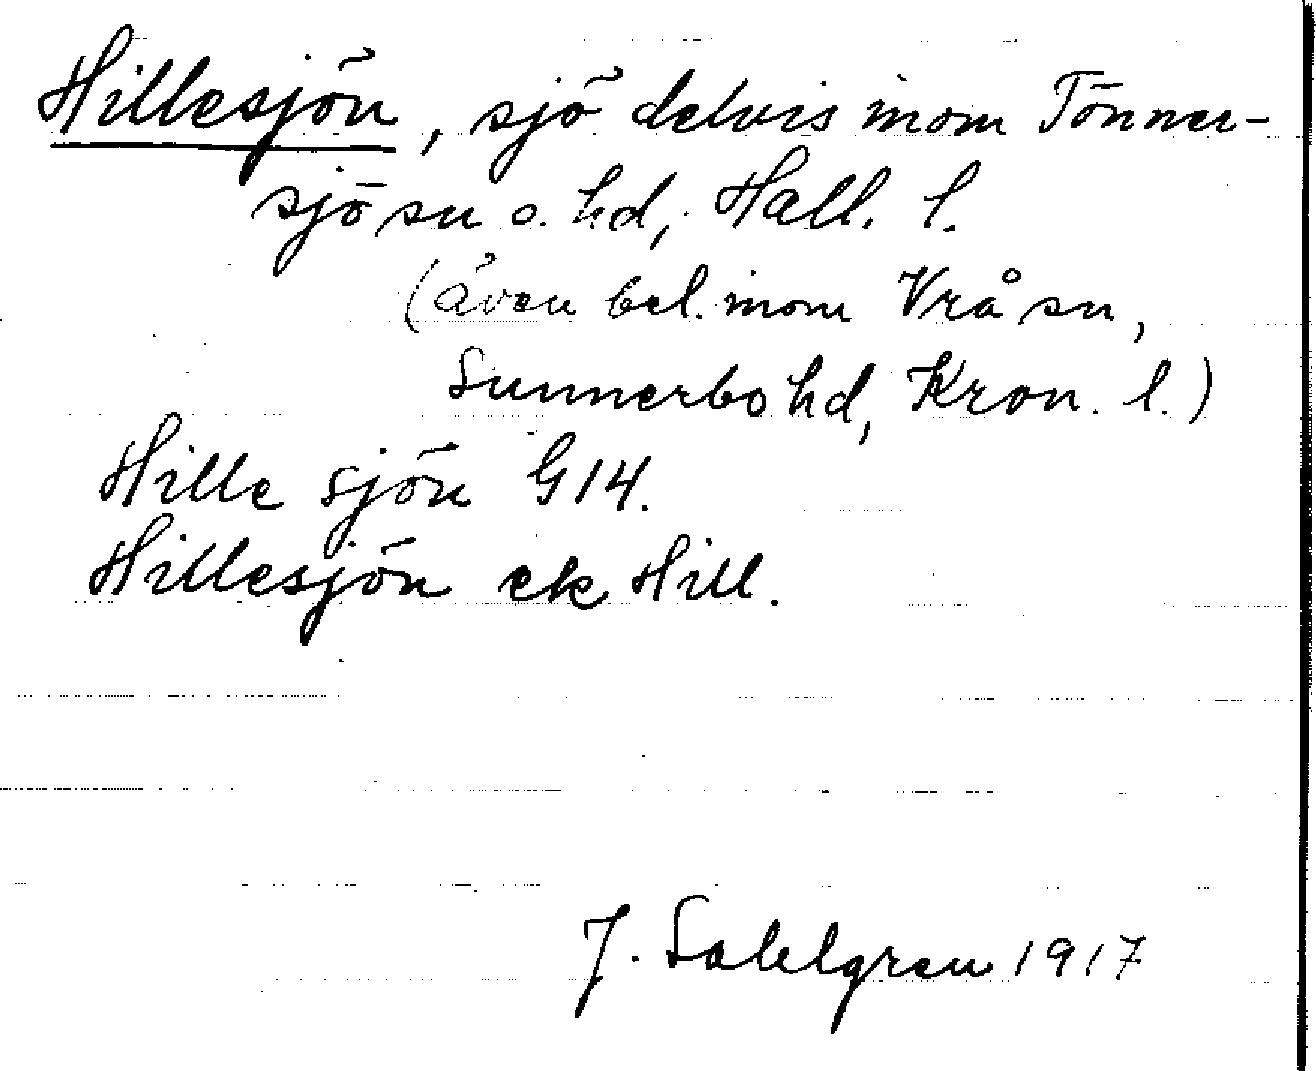 Hillesjön, sjö delvis inom Tönner-
sjö sn o. hd, Hall. l.
(även bel. inom Vrå sn,
Sunnerbo hd, Kron. l.)
Hille sjön G14.
Hillesjön ek Hill.
J. Sahlgren 1917